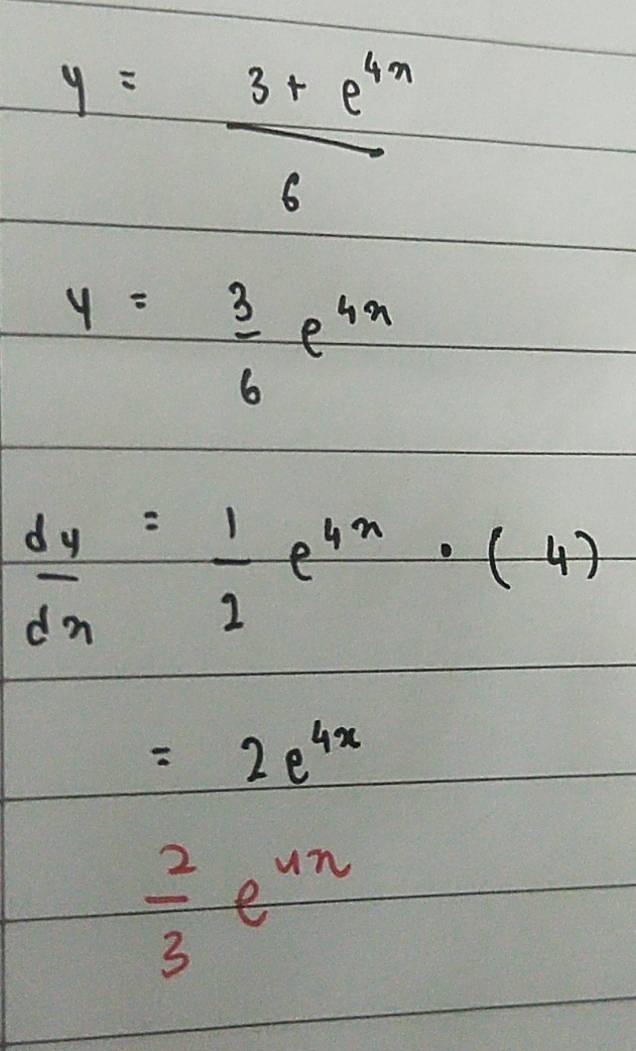 y = 3 + e^{4x}
6
y = 3/6 e^{4x}
dy/dx = 1/2 e^{4x} · (4)
= 2e^{4x}
2/3 e^{4x}